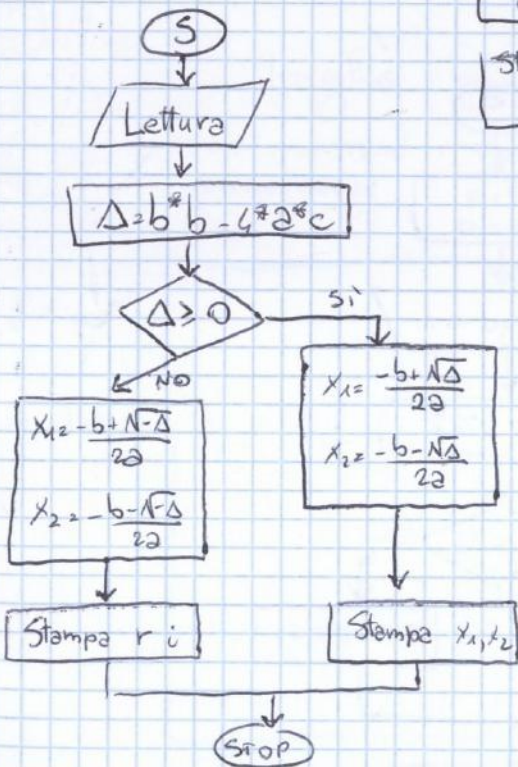 S
St
Lettura
Δ=b*b-4*a*c
Δ≥0
sì
NO
x₁= -b+√-Δ / 2a
x₂= -b-√-Δ / 2a
x₁= -b+√Δ / 2a
x₂= -b-√Δ / 2a
Stampa r i
Stampa x₁,x₂
STOP